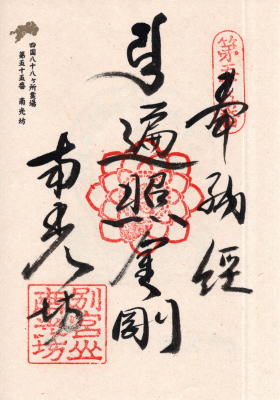 第五十五番
奉納経
遍照金剛
南光坊
別宮山
南光坊
四国八十八ヶ所霊場
第五十五番 南光坊